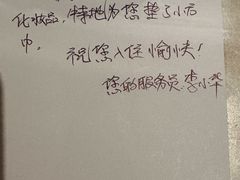 化妆品,特地为您整了小台
中。
祝您入住愉快!
您的服务员:李小华